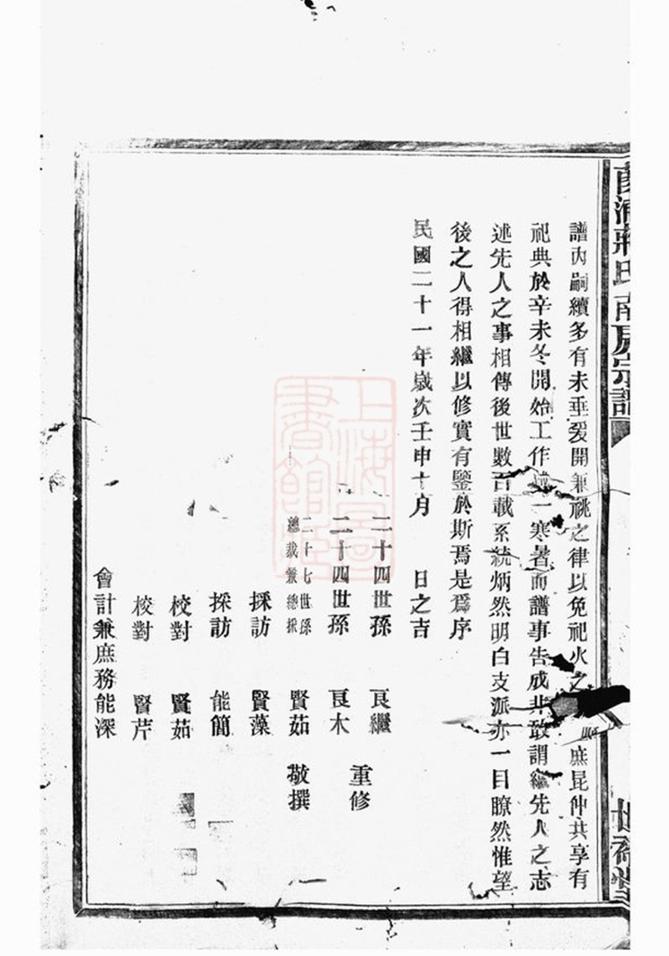 蔣氏南房宗譜
譜內嗣續多有未垂爰開兼祧之律以免祀火之庶昆仲共享有
祀典於辛未冬開始工作一寒暑而譜事告成非敢謂繼先人之志
述先人之事相傳後世數百載系統炳然明白支派亦一目瞭然惟望
後之人得相繼以修實有鑒於斯焉是爲序
民國二十一年歲次壬申十月 日之吉
二十四世孫 良繼
二十四世孫 良木 重修
二十七世孫總裁兼總 賢茹 敬撰
採訪 賢藻
採訪 能簡
校對 賢茹
校對 賢芹
會計兼庶務能深
世
上海圖書館藏